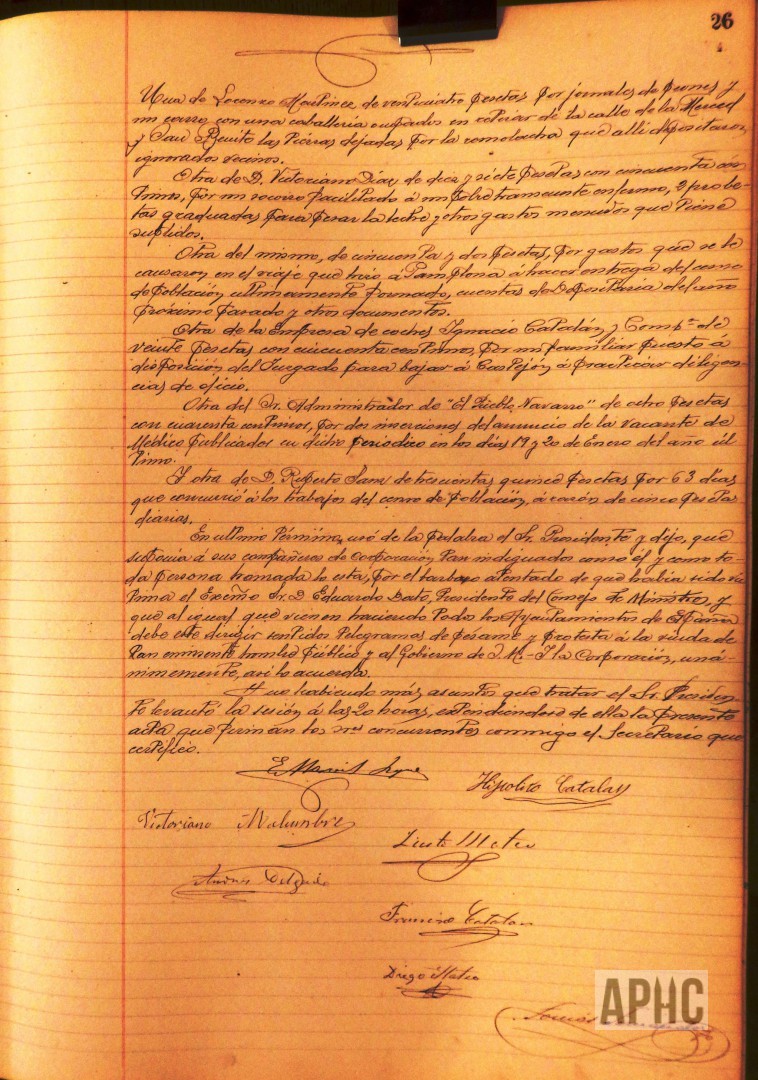 26
Una de Lorenzo Martinez de venticuatro pesetas por jornales de peones y
un carro con una caballería ocupados en retirar de la calle de la Merced
y San Benito las pierras dejadas por la remolacha que alli depositaron
ignorados vecinos.
Otra de D. Victoriano Díaz de diez y siete pesetas con cincuenta cén
timos, por un socorro facilitado á un pobre transeunte enfermo, 2 probe-
tas graduadas para pesar la leche y otros gastos menudos que tiene
suplidos.
Otra del mismo, de cincuenta y dos pesetas, por gastos que se le
causaron en el viaje que hizo á Pamplona á hacer entrega del censo
de población ultimamente formado, cuentas de Depositaria del año
próximo pasado y otros documentos.
Otra de la Empresa de coches Ignacio Catalán y Compª de
veinte pesetas con cincuenta centimos, por un familiar puesto á
disposición del Juzgado para bajar á Castejón á practicar diligen
cias de oficio.
Otra del Sr. Administrador de "El Pueblo Navarro" de ocho pesetas
con cuarenta centimos, por dos inserciones del anuncio de la vacante de
Médico publicados en dicho periodico en los días 19 y 20 de Enero del año úl
timo.
Y otra de D. Ruperto Sanz de trescuentas quince pesetas por 63 días
que concurrió á los trabajos del censo de población, á razón de cinco pesetas
diarias.
En ultimo término, usó de la palabra el Sr. Presidente y dijo, que
suponia á sus compañeros de Corporación tan indignados como él y como to-
da persona honrada lo esta, por el barbaro atentado de que había sido víc
tima el Excmo Sr. D. Eduardo Dato, Presidente del Consejo de Ministros, y
que al igual que vienen haciendo todos los Ayuntamientos de España
debe este dirigir sentidos telegramas de pésame y protesta á la viuda de
tan eminente hombre público y al Gobierno de S. M. Y la Corporación, uná-
nimemente, así lo acuerda.
Y no habiendo más asuntos que tratar el Sr. Presiden
te levantó la sesión á las 20 horas, extendiéndose de ella la presente
acta que firman los Sres concurrentes conmigo el Secretario que
certifico.
Hipolito Catalan
Victoriano Malumbres
Mateo
Andres Delgado
Francisco Catalan
Diego Mateo
APHC